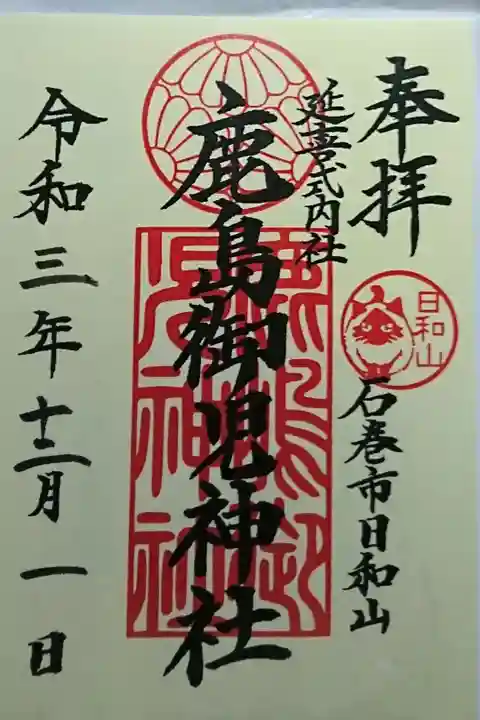 奉拝
日和山
石巻市日和山
延喜式内社
鹿島御児神社
令和三年十二月一日